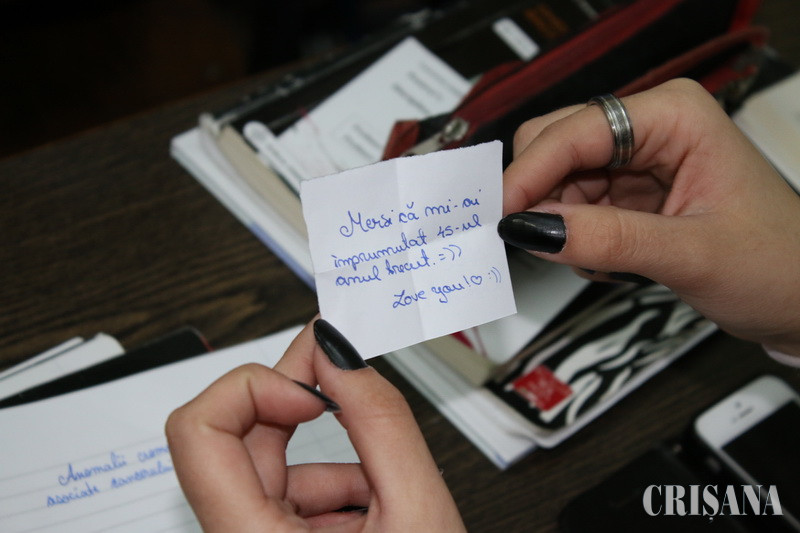 Mersi că mi-ai
împrumutat 45-ul
anul trecut. =))
Love you!♡ :))
Anomalii
asociate
CRIȘANA